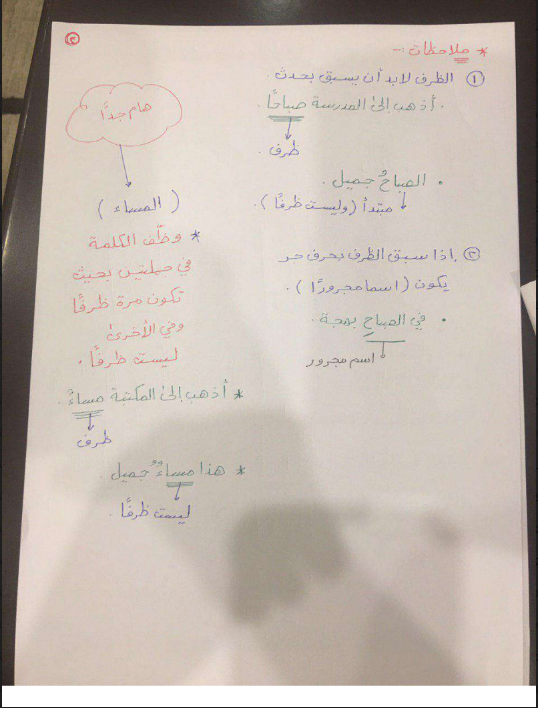 ٣
* ملاحظات :-
١ الظرف لابد أن يسبق بحدث.
. أذهب إلى المدرسة صباحًا.
ظرف.
. الصباحُ جميل.
مبتدأ (وليست ظرفًا).
٢ إذا سبق الظرف بحرف جر
يكون (اسما مجرورًا).
. في الصباحِ بهجة.
اسم مجرور
هام جدًّا
(المساء)
* وظّف الكلمة
في جملتين بحيث
تكون مرة ظرفًا
وفي الأخرى
ليست ظرفًا.
* أذهب إلى المكتبة مساءً.
ظرف
* هذا مساءٌ جميل
ليست ظرفًا.